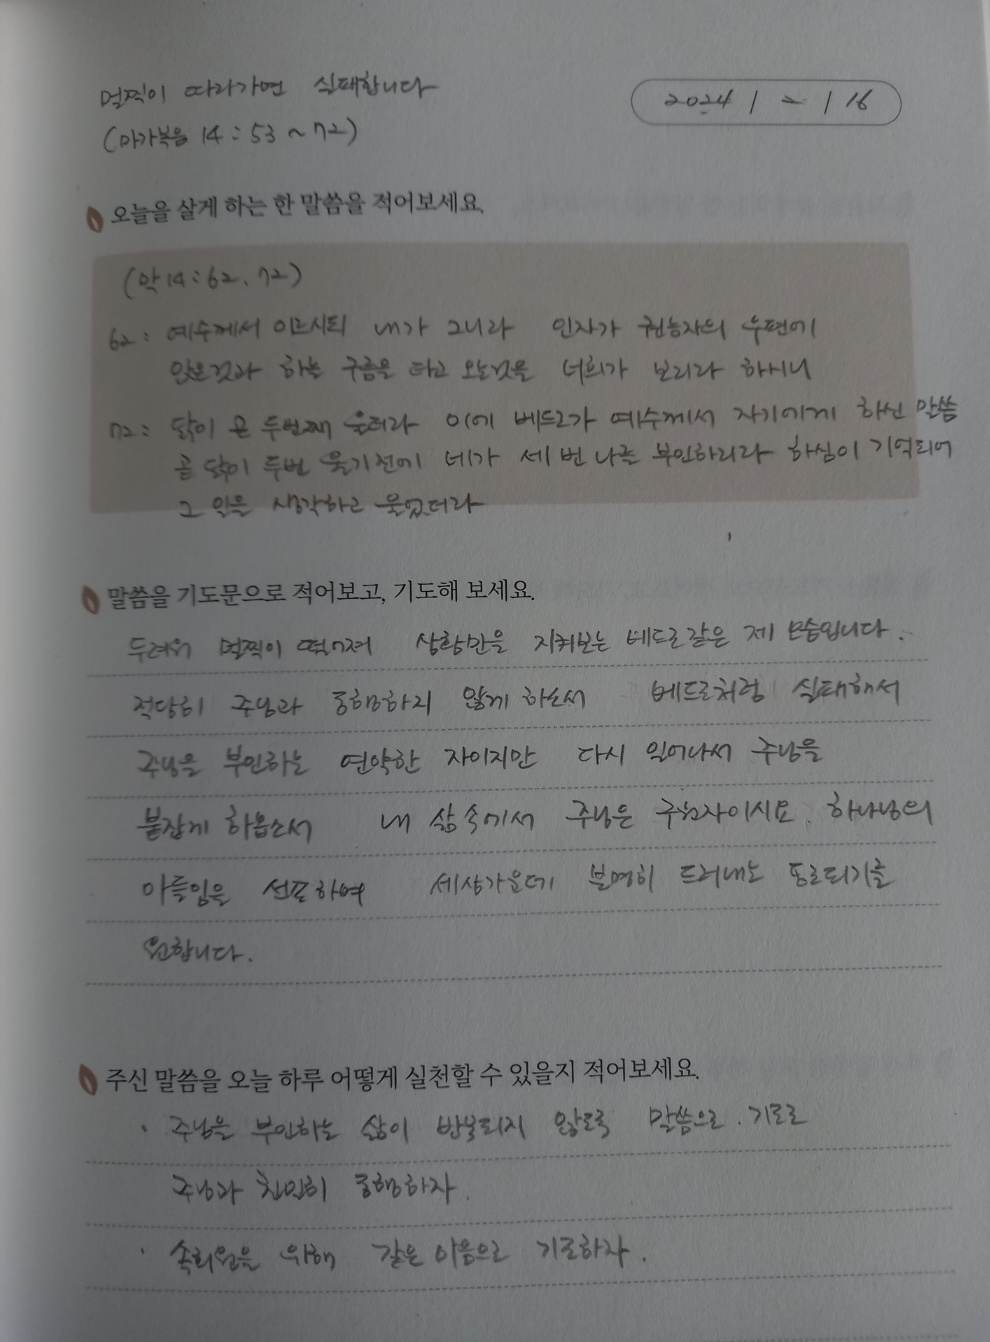 멀찍이 따라가면 실패합니다
2024 / 2 / 16
(마가복음 14:53 ~ 72)
오늘을 살게 하는 한 말씀을 적어보세요.
(막14:62, 72)
62: 예수께서 이르시되 내가 그니라 인자가 권능자의 우편에
앉은것과 하늘 구름을 타고 오는것을 너희가 보리라 하시니
72: 닭이 곧 두번째 울더라 이에 베드로가 예수께서 자기에게 하신 말씀
곧 닭이 두번 울기전에 네가 세 번 나를 부인하리라 하심이 기억되어
그 일을 생각하고 울었더라
말씀을 기도문으로 적어보고, 기도해 보세요.
두려워 멀찍이 떨어져 상황만을 지켜보는 베드로같은 제 모습입니다.
적당히 주님과 동행하지 않게 하소서 베드로처럼 실패해서
주님을 부인하는 연약한 자이지만 다시 일어나서 주님을
붙잡게 하옵소서 내 삶 속에서 주님은 구원자이시요. 하나님의
아들임을 선포하며 세상가운데 분명히 드러내는 통로되기를
원합니다.
주신 말씀을 오늘 하루 어떻게 실천할 수 있을지 적어보세요.
· 주님을 부인하는 삶이 반복되지 않도록 말씀으로. 기도로
주님과 친밀히 동행하자.
· 속회원을 위해 같은 마음으로 기도하자.